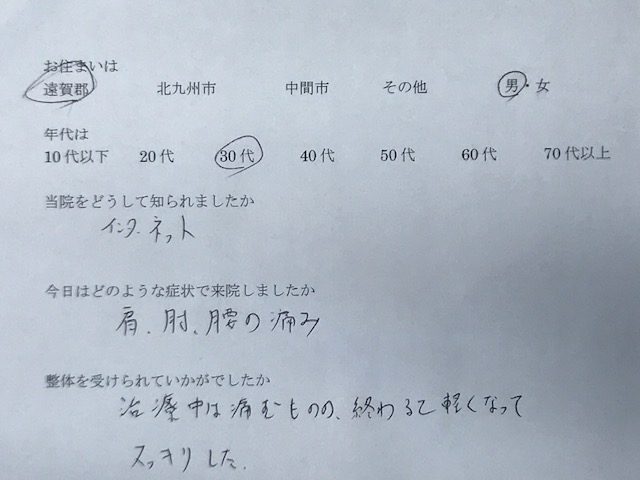 お住まいは
遠賀郡 北九州市 中間市 その他 男・女
年代は
10代以下 20代 30代 40代 50代 60代 70代以上
当院をどうして知られましたか
インターネット
今日はどのような症状で来院しましたか
肩、肘、腰の痛み
整体を受けられていかがでしたか
治療中は痛むものの、終わると軽くなって
スッキリした.